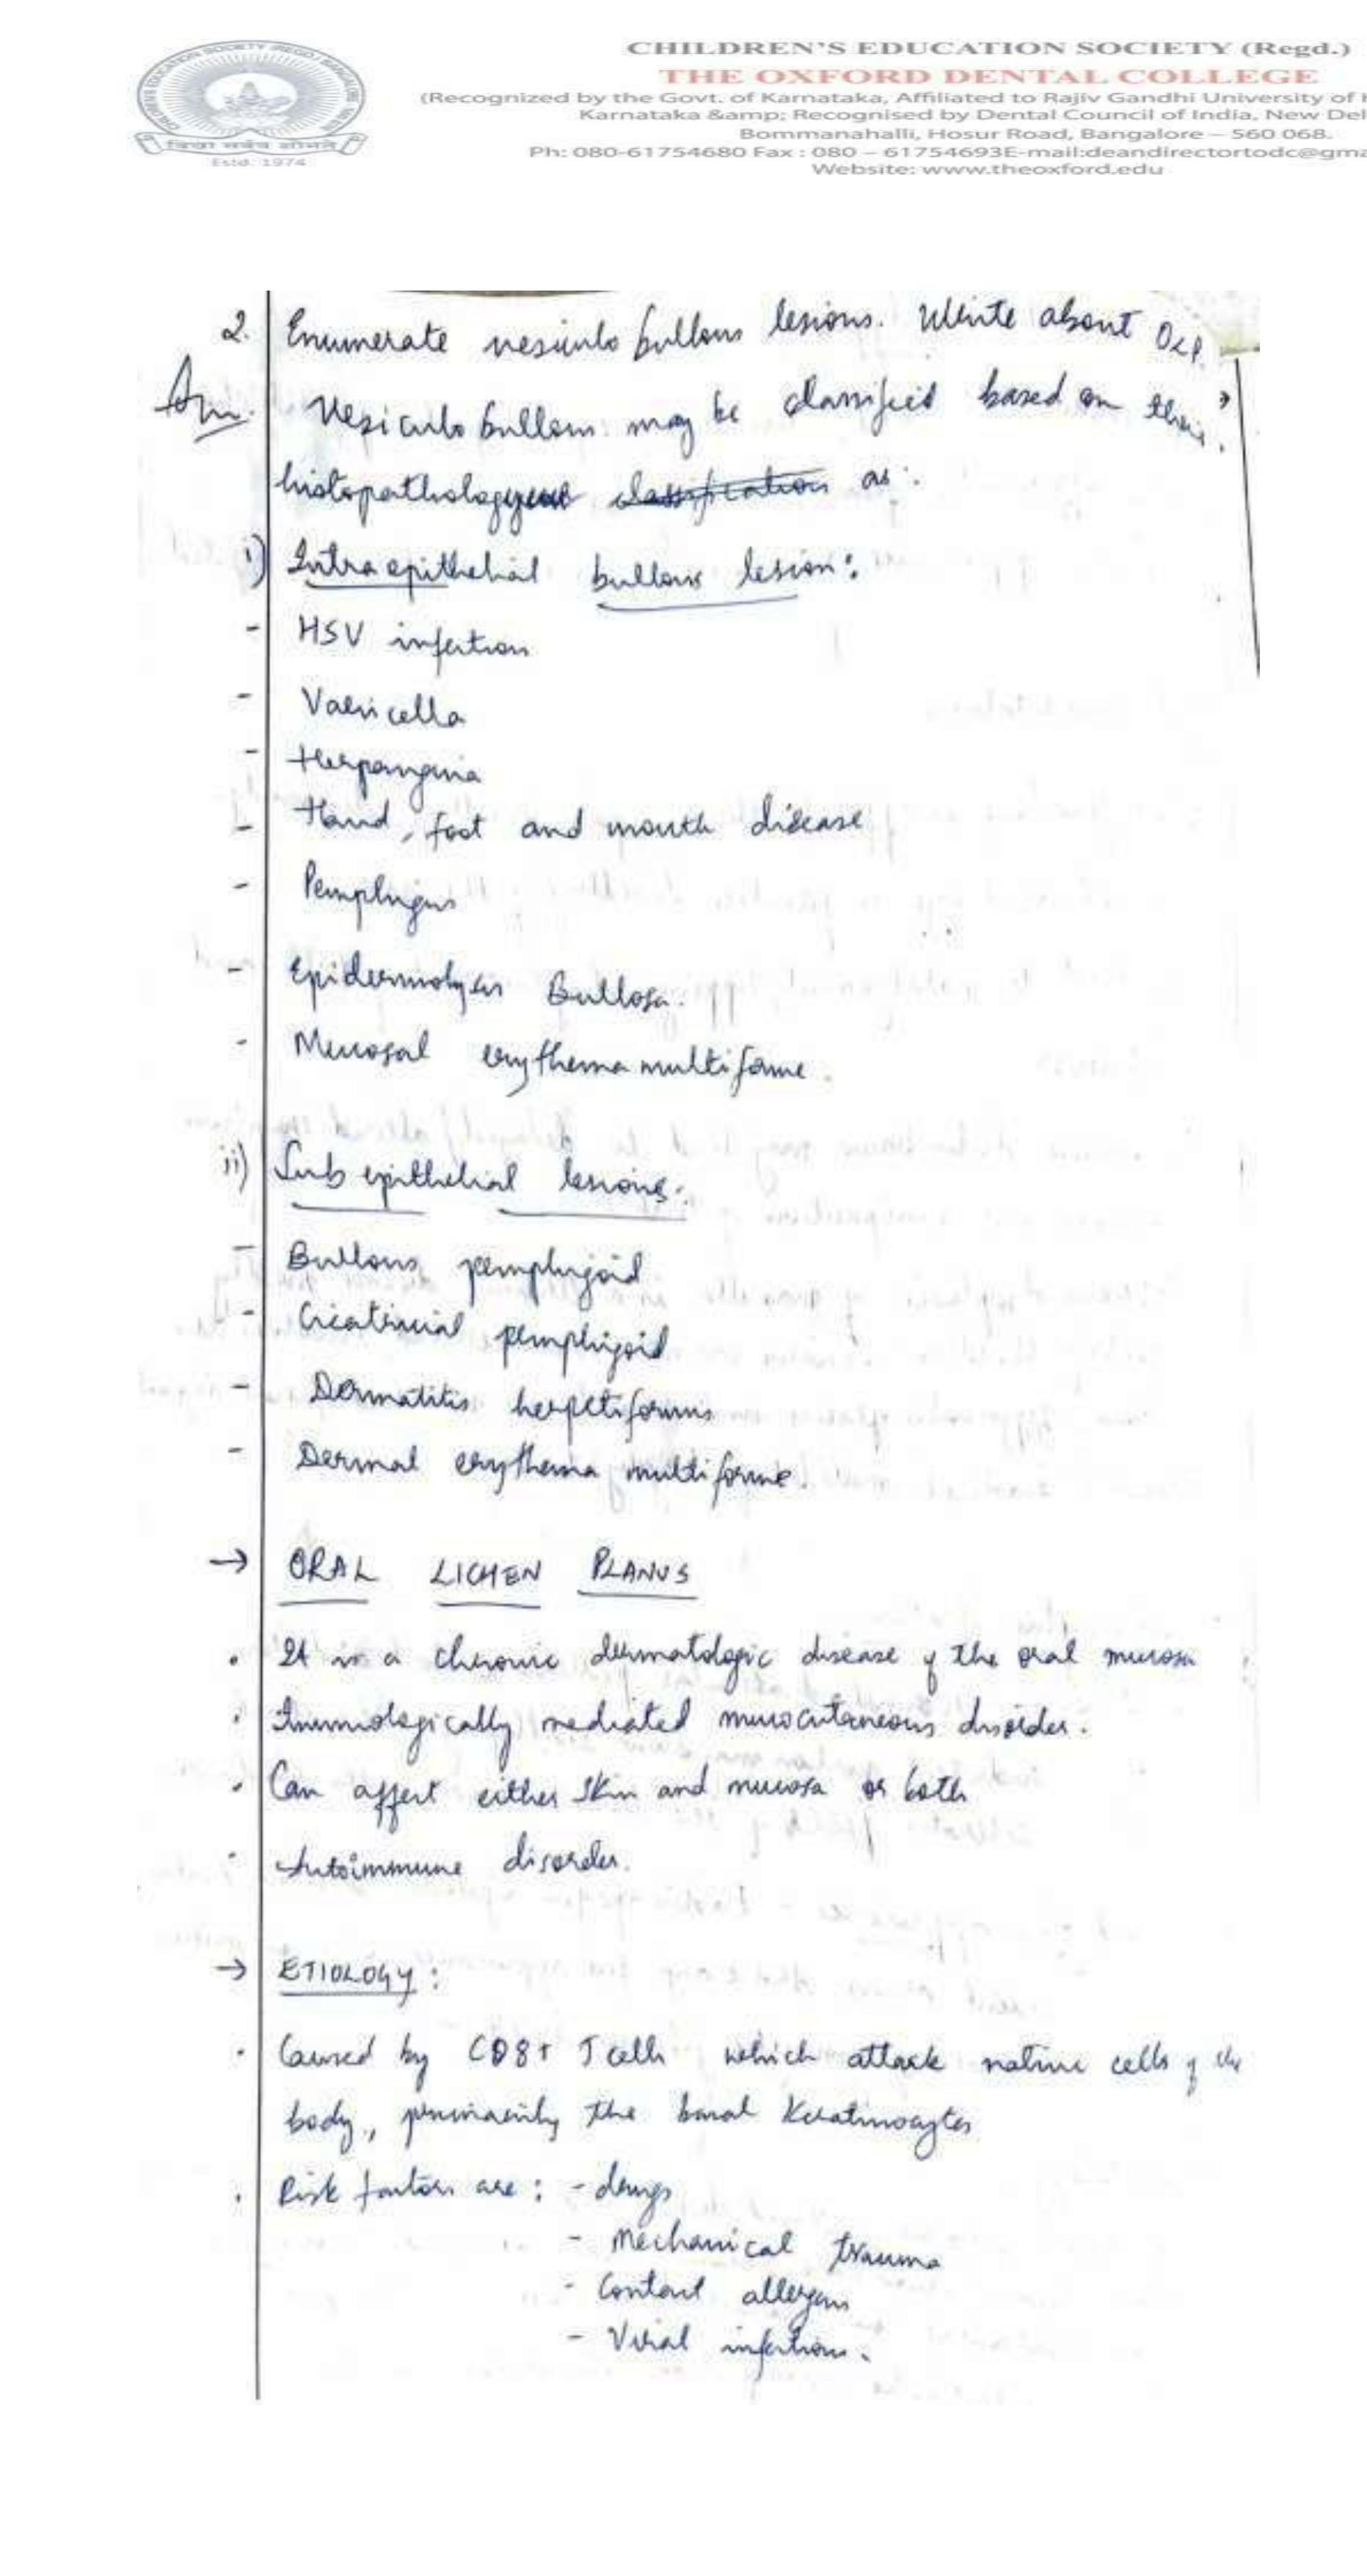 CHILDREN'S EDUCATION SOCIETY (Regd.)
THE OXFORD DENTAL COLLEGE
(Recognized by the Govt. of Karnataka, Affiliated to Rajiv Gandhi University of H
Karnataka &amp; Recognised by Dental Council of India, New Del
Bommanahalli, Hosur Road, Bangalore – 560 068.
Ph: 080-61754680 Fax : 080 – 61754693E-mail:deandirectortodc@gma
Website: www.theoxford.edu
Estd: 1974
2. Enumerate vesiculo bullous lesions. Write about OLP.
Ans. Vesiculo bullous may be classified based on their
histopathology as :
i) Intra epithelial bullous lesion :
- HSV infection
- Varicella
- Herpangina
- Hand, foot and mouth disease
- Pemphigus
- Epidermolysis Bullosa.
- Mucosal erythema multiforme.
ii) Sub epithelial lesions :
- Bullous pemphigoid
- Cicatricial pemphigoid
- Dermatitis herpetiformis
- Dermal erythema multiforme.
→ ORAL LICHEN PLANUS
• It is a chronic dermatologic disease of the oral mucosa
• Immunologically mediated mucocutaneous disorder.
• Can affect either skin and mucosa or both
• Autoimmune disorder.
→ ETIOLOGY :
• Caused by CD8+ T cells which attack native cells of the
body, primarily the basal Keratinocytes
• Risk factors are : - drugs
- Mechanical trauma
- Contact allergens
- Viral infections.